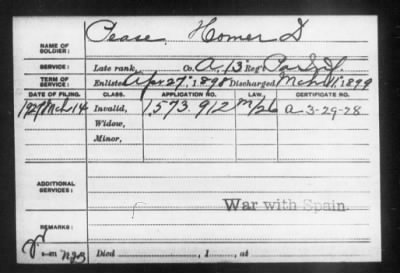 Pease, Homer D
NAME OF SOLDIER:
SERVICE: Late rank, Co. A, 13" Reg Pa. Inf.
TERM OF SERVICE: Enlisted Apr 27", 1898 Discharged Mch 11", 1899
DATE OF FILING. CLASS. APPLICATION NO. LAW. CERTIFICATE NO.
1927 Mch 14 Invalid, 1,573,912 m/26 a-3-29-28
Widow,
Minor,
ADDITIONAL SERVICES:
War with Spain.
REMARKS:
Died , 1 , at